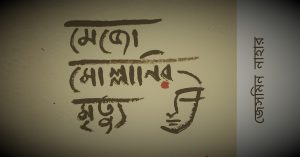 মেজো
মোল্লানির
মৃত্যু
জেসমিন নাহার